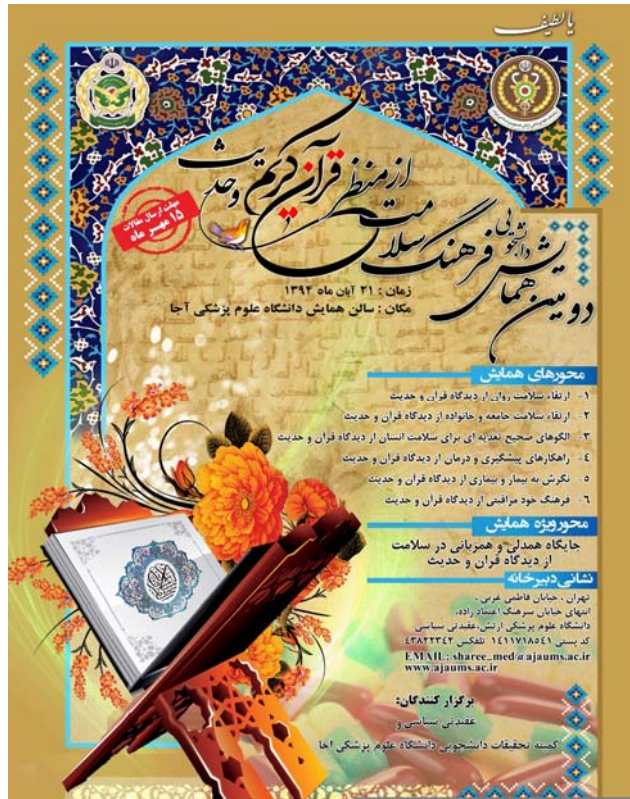 یا لطیف
دومین همایش دانشجویی فرهنگ سلامت از منظر قرآن کریم و حدیث
مهلت ارسال مقالات
۱۵ مهر ماه
زمان : ۲۱ آبان ماه ۱۳۹۴
مکان : سالن همایش دانشگاه علوم پزشکی آجا
محورهای همایش
۱- ارتقاء سلامت روان از دیدگاه قرآن و حدیث
۲- ارتقاء سلامت جامعه و خانواده از دیدگاه قرآن و حدیث
۳- الگوهای صحیح تغذیه ای برای سلامت انسان از دیدگاه قرآن و حدیث
٤- راهکارهای پیشگیری و درمان از دیدگاه قرآن و حدیث
۵- نگرش به بیمار و بیماری از دیدگاه قرآن و حدیث
٦- فرهنگ خود مراقبتی از دیدگاه قرآن و حدیث
محور ویژه همایش
جایگاه همدلی و همزبانی در سلامت
از دیدگاه قرآن و حدیث
نشانی دبیرخانه
تهران ، خیابان فاطمی غربی ،
انتهای خیابان سرهنگ اعتماد زاده،
دانشگاه علوم پزشکی ارتش،عقیدتی سیاسی
کد پستی ۱۴۱۱۷۱۸۵۴۱ تلفکس ۴۳۸۲۲۳۴۲
EMAIL: sharee_med@ajaums.ac.ir
www.ajaums.ac.ir
برگزار کنندگان:
عقیدتی سیاسی و
کمیته تحقیقات دانشجویی دانشگاه علوم پزشکی اجا